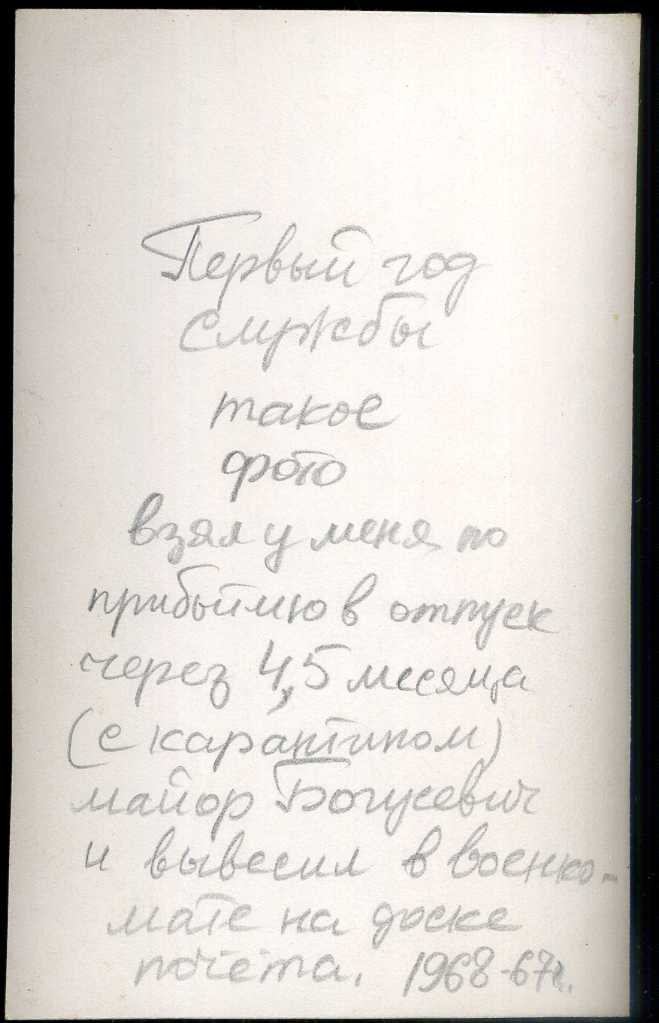 Первый год
службы
такое
фото
взял у меня по
прибытию в отпуск
через 4,5 месяца
(с карантином)
майор Богусевич
и вывесил в военко-
мате на доске
почёта. 1968-67г.